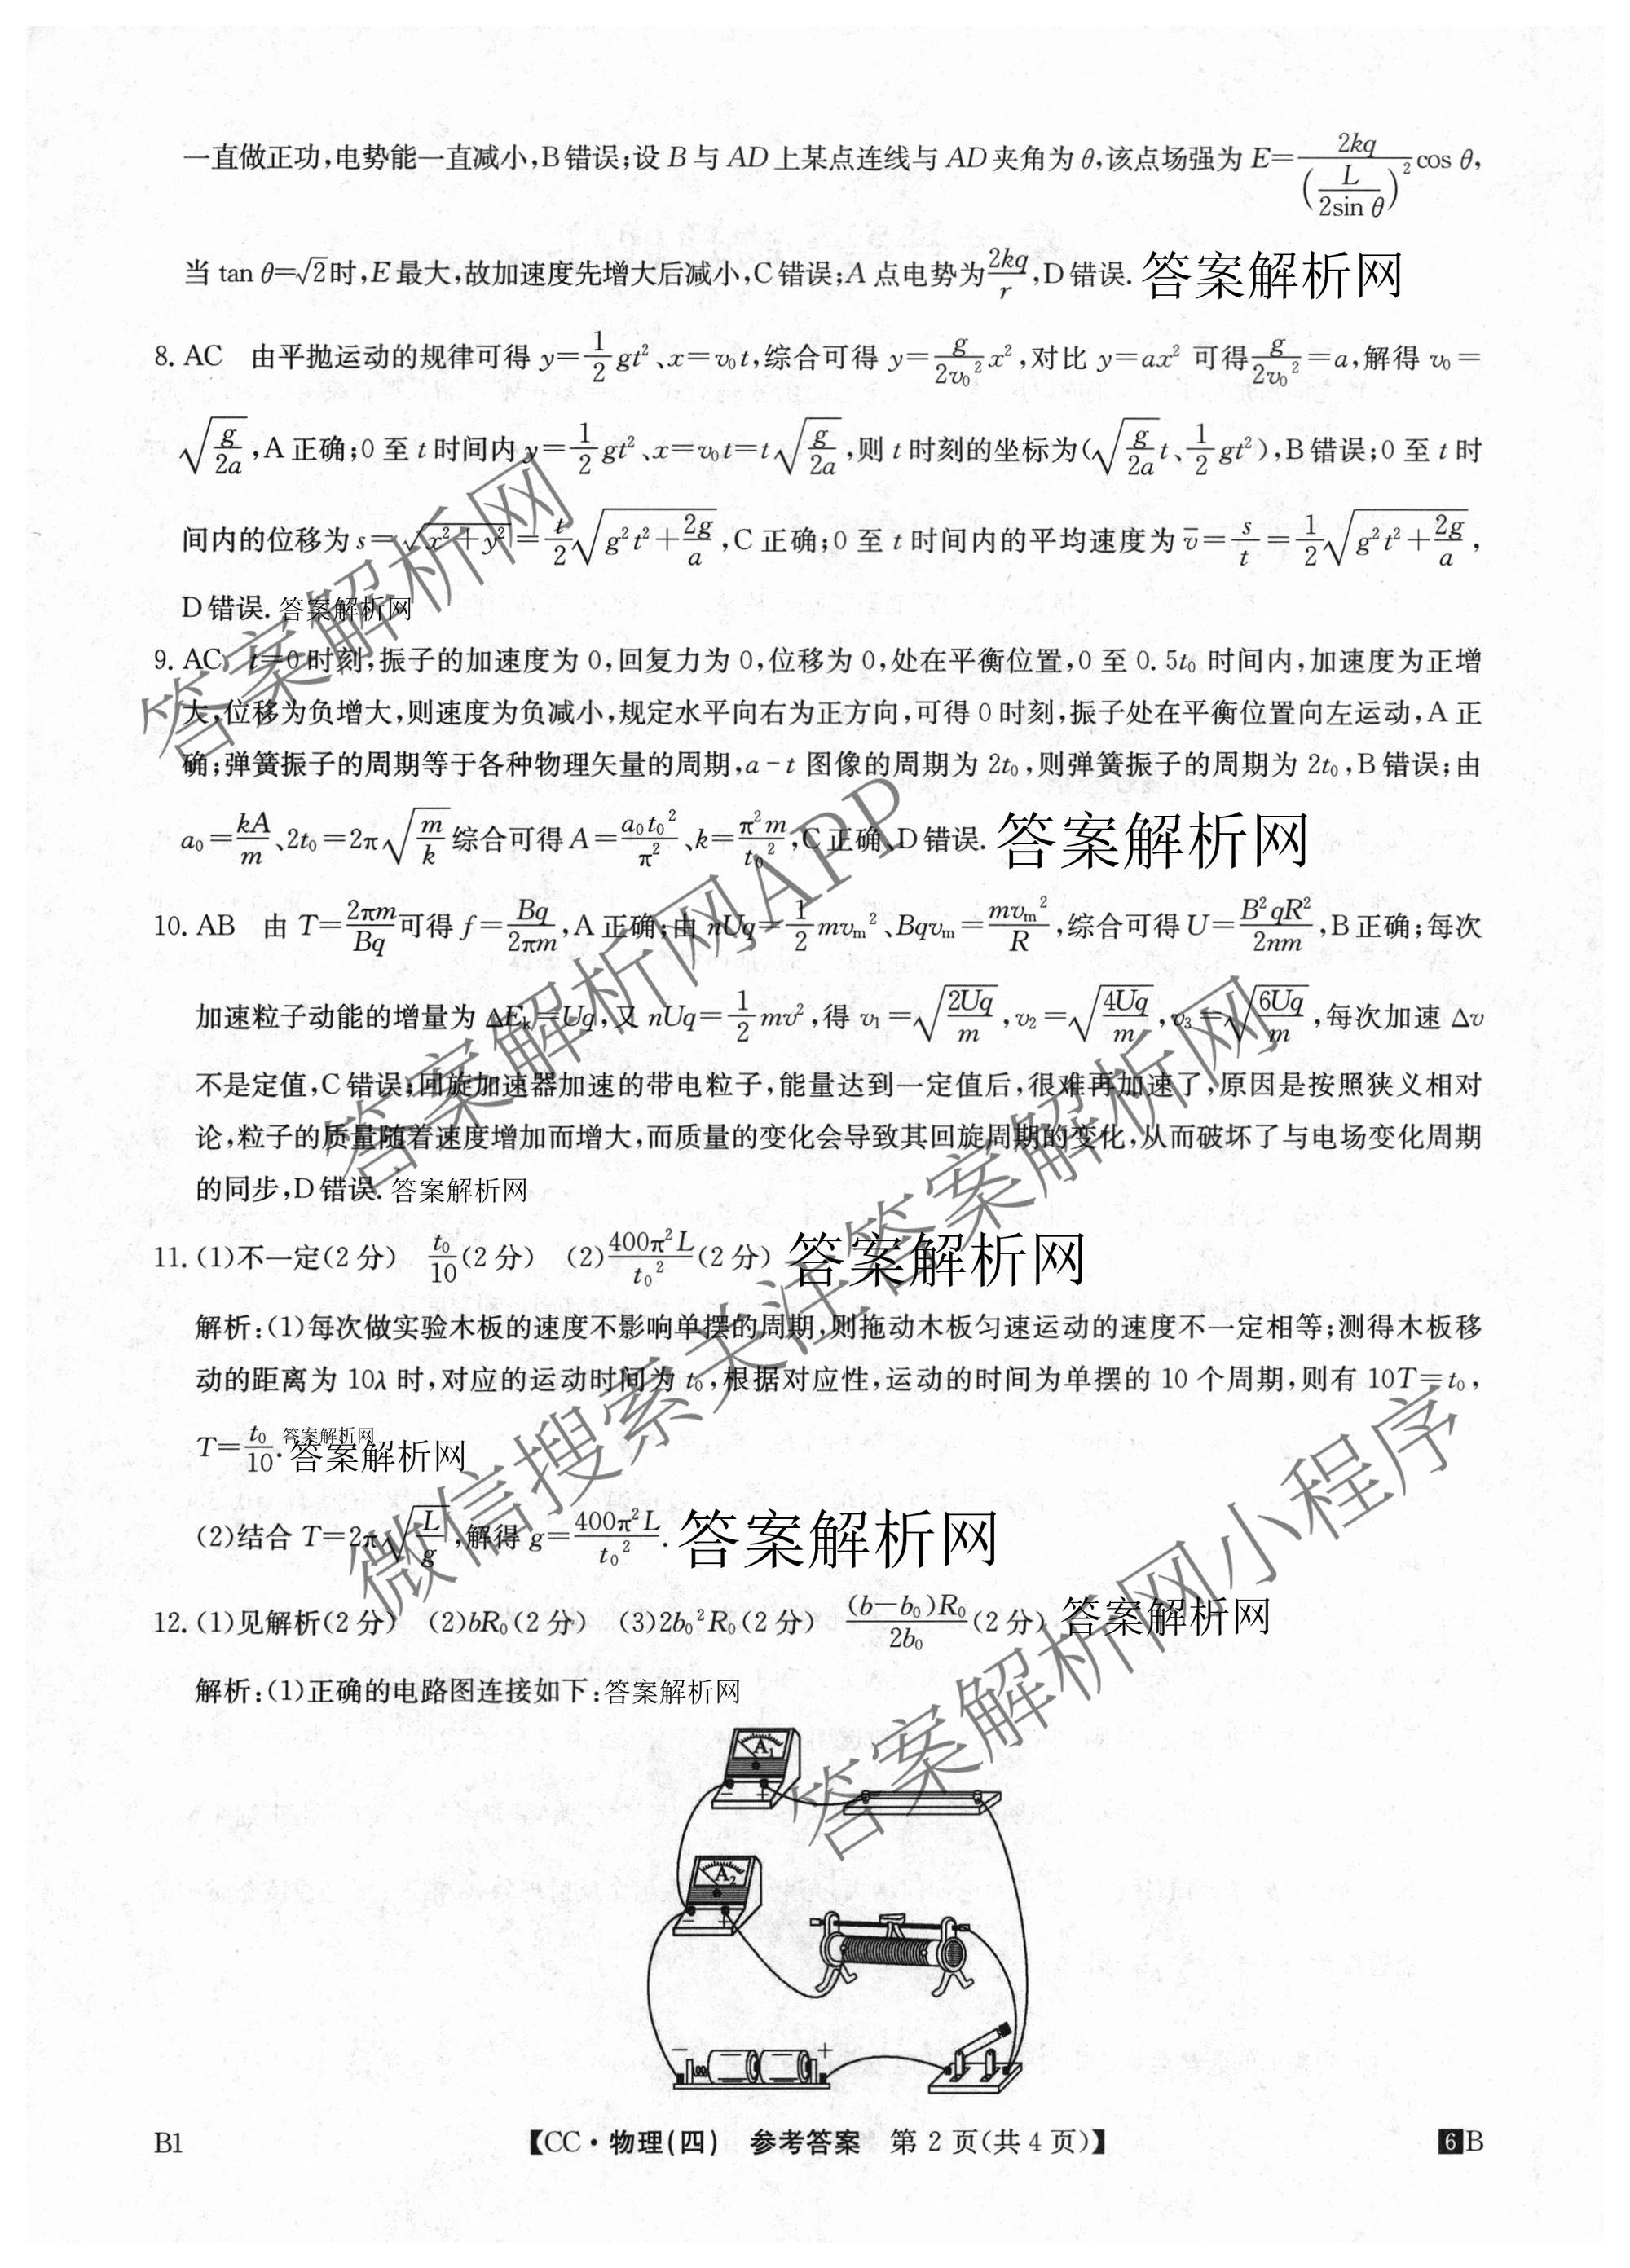 一直做正功,电势能一直减小,B错误;设 B 与 AD 上某点连线与 AD 夹角为 θ,该点场强为 E=\frac{2kq}{(\frac{L}{2sin θ})^2}cos θ,
当 tan θ=√2时,E 最大,故加速度先增大后减小,C错误;A 点电势为\frac{2kq}{r},D错误. 答案解析网
8. AC 由平抛运动的规律可得 y=\frac{1}{2}gt²、x=v₀t,综合可得 y=\frac{g}{2v₀²}x²,对比 y=ax² 可得\frac{g}{2v₀²}=a,解得 v₀=
\sqrt{\frac{g}{2a}},A 正确;0 至 t 时间内 y=\frac{1}{2}gt²、x=v₀t=t\sqrt{\frac{g}{2a}},则 t 时刻的坐标为(\sqrt{\frac{g}{2a}}t、\frac{1}{2}gt²),B错误;0 至 t 时
间内的位移为 s=\sqrt{x²+y²}=\frac{t}{2}\sqrt{g²t²+\frac{2g}{a}},C 正确;0 至 t 时间内的平均速度为 \bar{v}=\frac{s}{t}=\frac{1}{2}\sqrt{g²t²+\frac{2g}{a}},
D错误. 答案解析网
9. AC t=0时刻,振子的加速度为 0,回复力为 0,位移为 0,处在平衡位置,0 至 0.5t₀ 时间内,加速度为正增
大,位移为负增大,则速度为负减小,规定水平向右为正方向,可得 0 时刻,振子处在平衡位置向左运动,A 正
确;弹簧振子的周期等于各种物理矢量的周期,a-t 图像的周期为 2t₀,则弹簧振子的周期为 2t₀,B错误;由
a₀=\frac{kA}{m}、2t₀=2π\sqrt{\frac{m}{k}}综合可得 A=\frac{a₀t₀²}{π²}、k=\frac{π²m}{t₀²},C正确、D错误. 答案解析网
10. AB 由 T=\frac{2πm}{Bq}可得 f=\frac{Bq}{2πm},A 正确;由 nUq=\frac{1}{2}mvₘ²、Bqvₘ=\frac{mvₘ²}{R},综合可得 U=\frac{B²qR²}{2nm},B正确;每次
加速粒子动能的增量为 ΔEₖ=Uq,又 nUq=\frac{1}{2}mv²,得 v₁=\sqrt{\frac{2Uq}{m}},v₂=\sqrt{\frac{4Uq}{m}},v₃=\sqrt{\frac{6Uq}{m}},每次加速 Δv
不是定值,C错误;回旋加速器加速的带电粒子,能量达到一定值后,很难再加速了,原因是按照狭义相对
论,粒子的质量随着速度增加而增大,而质量的变化会导致其回旋周期的变化,从而破坏了与电场变化周期
的同步,D错误. 答案解析网
11. (1)不一定(2 分) \frac{t₀}{10}(2 分) (2)\frac{400π²L}{t₀²}(2 分) 答案解析网
解析:(1)每次做实验木板的速度不影响单摆的周期,则拖动木板匀速运动的速度不一定相等;测得木板移
动的距离为 10λ 时,对应的运动时间为 t₀,根据对应性,运动的时间为单摆的 10 个周期,则有 10T=t₀,
T=\frac{t₀}{10}. 答案解析网 答案解析网
(2)结合 T=2π\sqrt{\frac{L}{g}},解得 g=\frac{400π²L}{t₀²}. 答案解析网
12. (1)见解析(2 分) (2)bR₀(2 分) (3)2b₀²R₀(2 分) \frac{(b-b₀)R₀}{2b₀}(2 分) 答案解析网
解析:(1)正确的电路图连接如下:答案解析网
A₁
- +
A₂
- +
- +
B1 【CC·物理(四) 参考答案 第 2 页(共 4 页)】 6 B
答案解析网
答案解析网APP
微信搜索关注答案解析网
答案解析网小程序